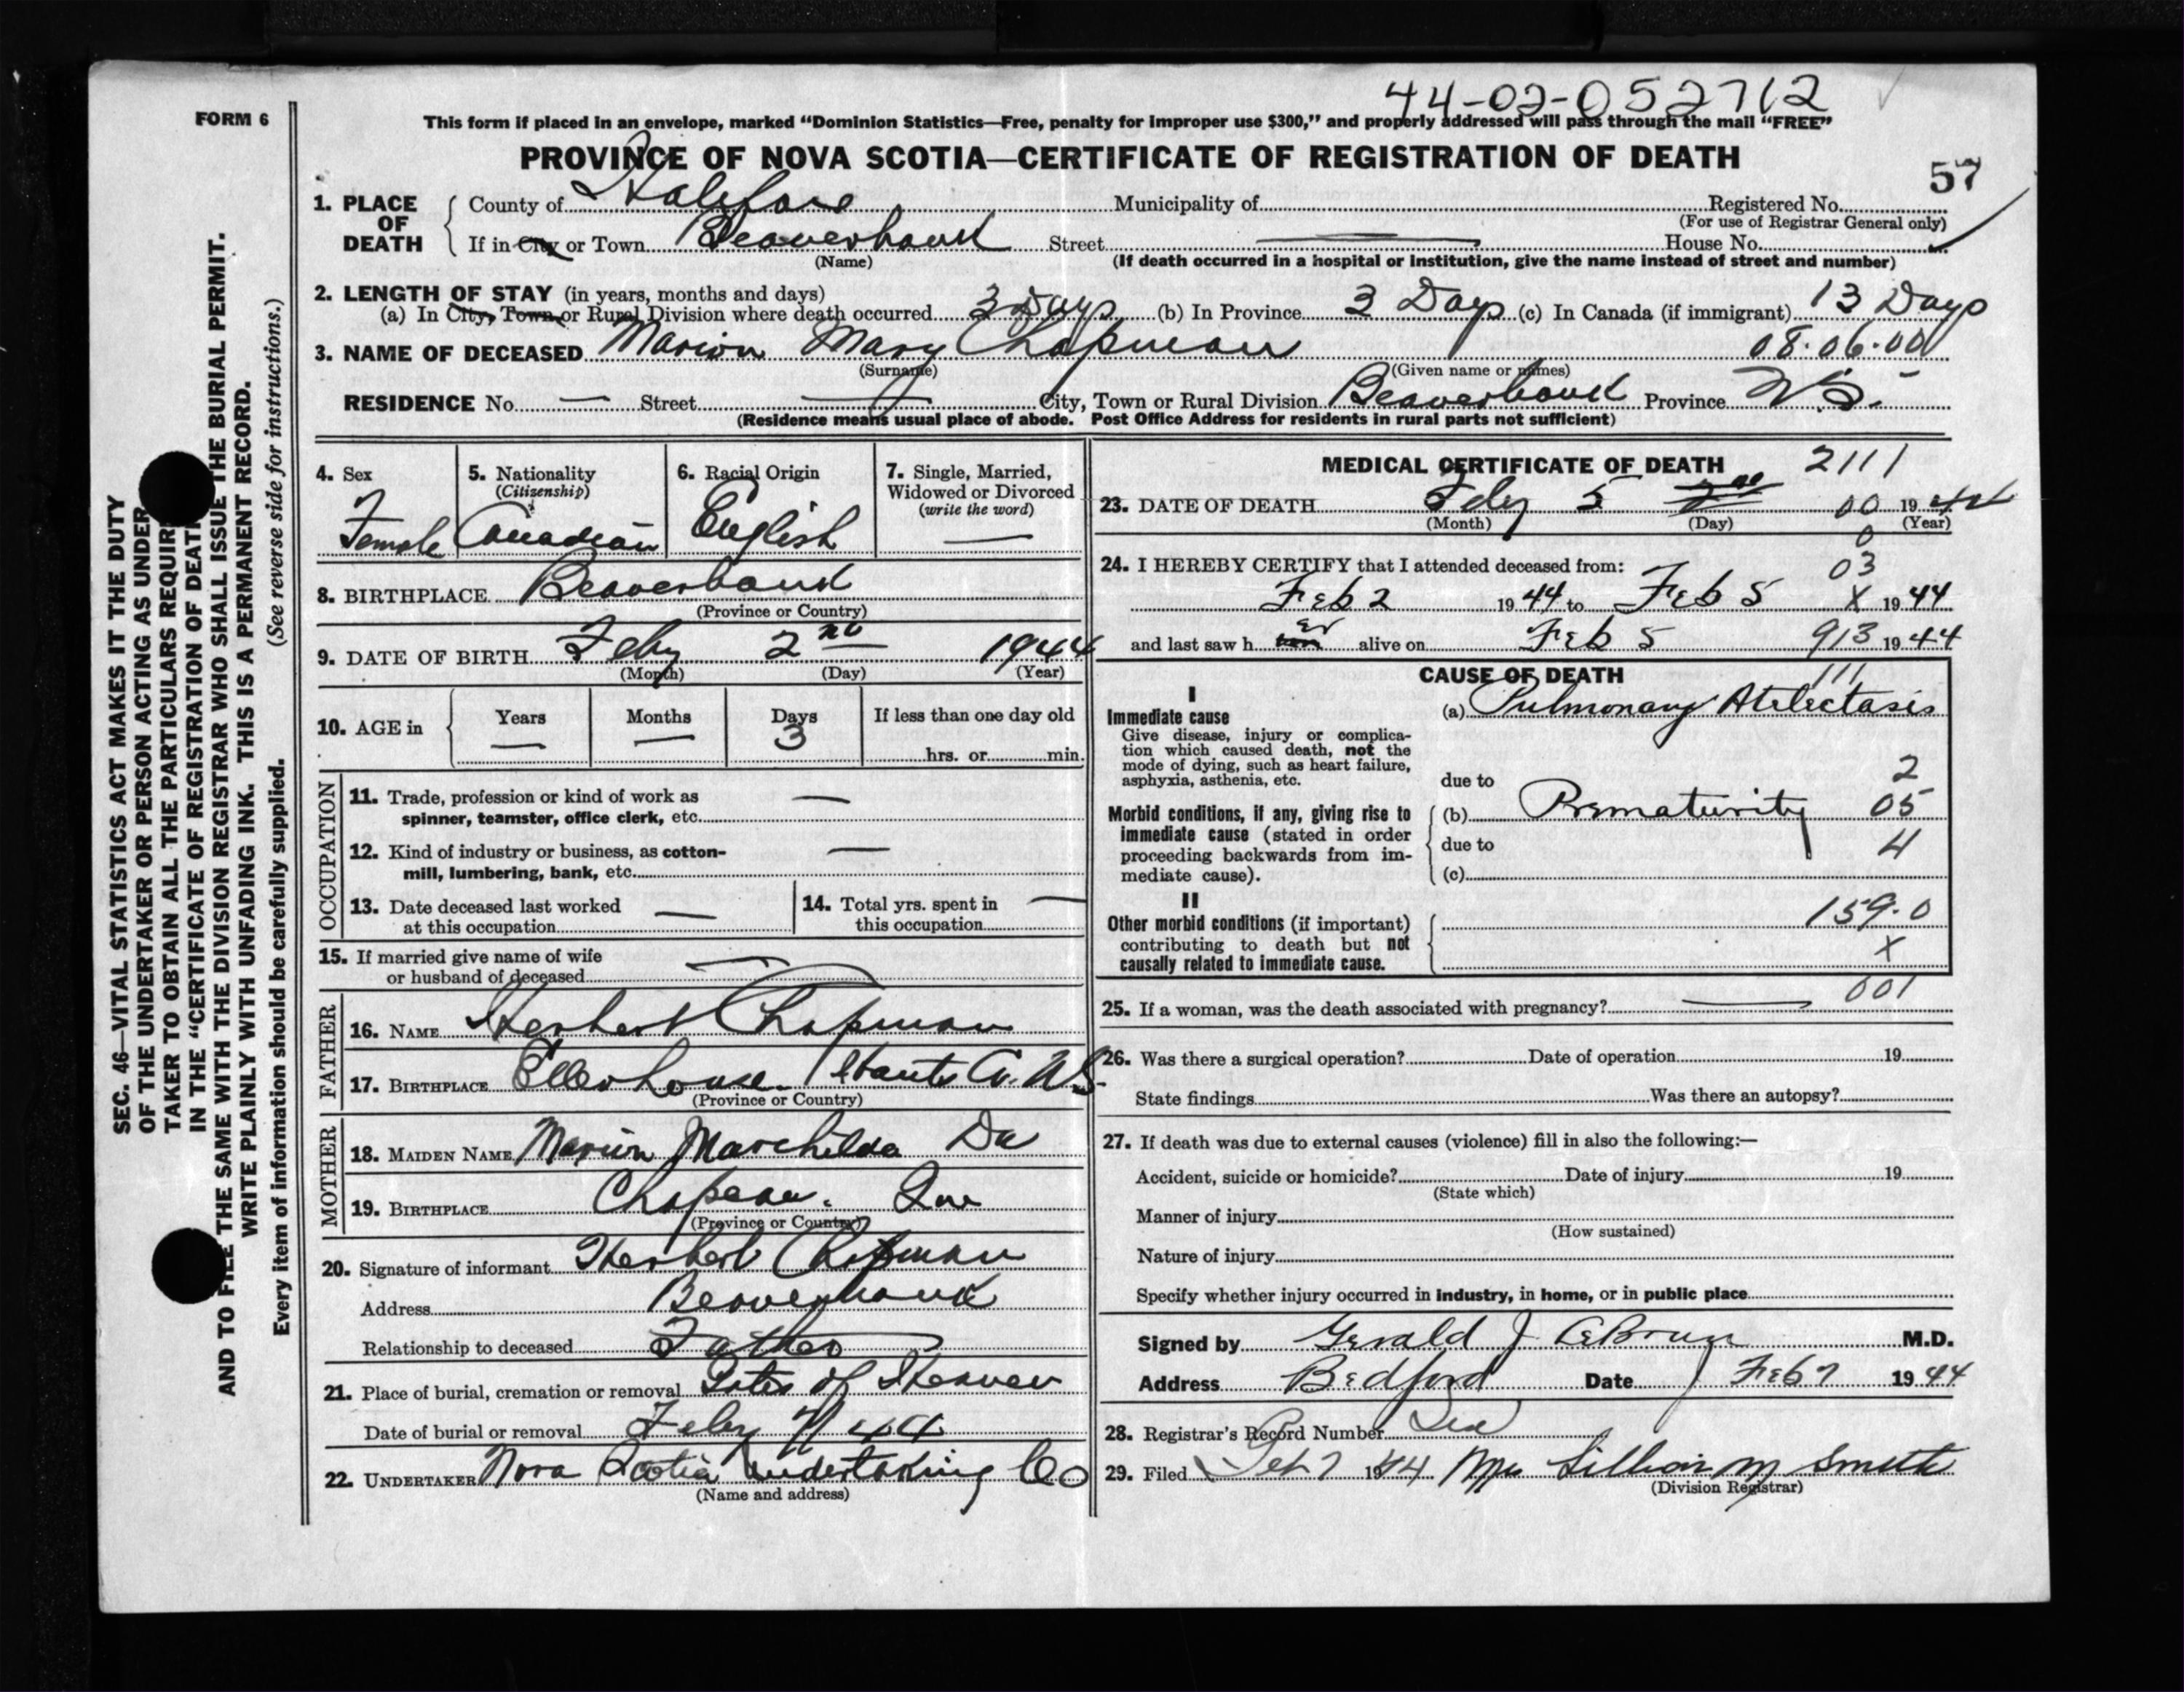 44-02-052712
FORM 6
This form if placed in an envelope, marked "Dominion Statistics—Free, penalty for improper use $300," and properly addressed will pass through the mail "FREE"
PROVINCE OF NOVA SCOTIA—CERTIFICATE OF REGISTRATION OF DEATH
57
1. PLACE OF DEATH County of Halifax Municipality of Registered No.
(For use of Registrar General only)
If in City or Town Beaverbank Street — House No.
(Name) (If death occurred in a hospital or institution, give the name instead of street and number)
2. LENGTH OF STAY (in years, months and days)
(a) In City, Town or Rural Division where death occurred 3 Days (b) In Province 3 Days (c) In Canada (if immigrant) 13 Days
3. NAME OF DECEASED Marion Mary Chapman 08·06·00
(Surname) (Given name or names)
RESIDENCE No. — Street — City, Town or Rural Division Beaverbank Province N.S.
(Residence means usual place of abode. Post Office Address for residents in rural parts not sufficient)
SEC. 46—VITAL STATISTICS ACT MAKES IT THE DUTY
OF THE UNDERTAKER OR PERSON ACTING AS UNDER
TAKER TO OBTAIN ALL THE PARTICULARS REQUIR
IN THE "CERTIFICATE OF REGISTRATION OF DEATH
AND TO FILE THE SAME WITH THE DIVISION REGISTRAR WHO SHALL ISSUE THE BURIAL PERMIT.
WRITE PLAINLY WITH UNFADING INK. THIS IS A PERMANENT RECORD.
Every item of information should be carefully supplied. (See reverse side for instructions.)
4. Sex 5. Nationality 6. Racial Origin 7. Single, Married,
(Citizenship) Widowed or Divorced
(write the word)
Female Canadian English —
8. BIRTHPLACE Beaverbank
(Province or Country)
9. DATE OF BIRTH Feby 2nd 1944
(Month) (Day) (Year)
10. AGE in Years Months Days If less than one day old
— — 3 hrs. or min.
OCCUPATION
11. Trade, profession or kind of work as —
spinner, teamster, office clerk, etc.
12. Kind of industry or business, as cotton- —
mill, lumbering, bank, etc.
13. Date deceased last worked — 14. Total yrs. spent in —
at this occupation this occupation
15. If married give name of wife —
or husband of deceased
FATHER
16. NAME Herbert Chapman
17. BIRTHPLACE Ellershouse. Hants Co. N.S.
(Province or Country)
MOTHER
18. MAIDEN NAME Marion
19. BIRTHPLACE Chapeau.
(Province or Country)
20. Signature of informant Herbert Chapman
Address Beaverbank
Relationship to deceased Father
21. Place of burial, cremation or removal Gates of Heaven
Date of burial or removal Feby 7/44
22. UNDERTAKER Nova Scotia Undertaking Co
(Name and address)
MEDICAL CERTIFICATE OF DEATH 2111
23. DATE OF DEATH Feby 5 00 1944
(Month) (Day) (Year)
0
24. I HEREBY CERTIFY that I attended deceased from: 03
Feb 2 1944 to Feb 5 X 1944
and last saw her alive on Feb 5 913 1944
CAUSE OF DEATH 111
I
Immediate cause (a) Pulmonary Atelectasis
Give disease, injury or complica-
tion which caused death, not the
mode of dying, such as heart failure,
asphyxia, asthenia, etc. due to 2
Morbid conditions, if any, giving rise to (b) Prematurity 05
immediate cause (stated in order
proceeding backwards from im- due to 4
mediate cause). (c)
II
Other morbid conditions (if important) 159·0
contributing to death but not X
causally related to immediate cause.
25. If a woman, was the death associated with pregnancy? — 001
26. Was there a surgical operation? Date of operation 19
State findings Was there an autopsy?
27. If death was due to external causes (violence) fill in also the following:—
Accident, suicide or homicide? Date of injury 19
(State which)
Manner of injury
(How sustained)
Nature of injury
Specify whether injury occurred in industry, in home, or in public place
Signed by Gerald J M.D.
Address Bedford Date Feb 7 1944
28. Registrar's Record Number
29. Filed Feb 7 1944 Mrs Lillian M Smith
(Division Registrar)